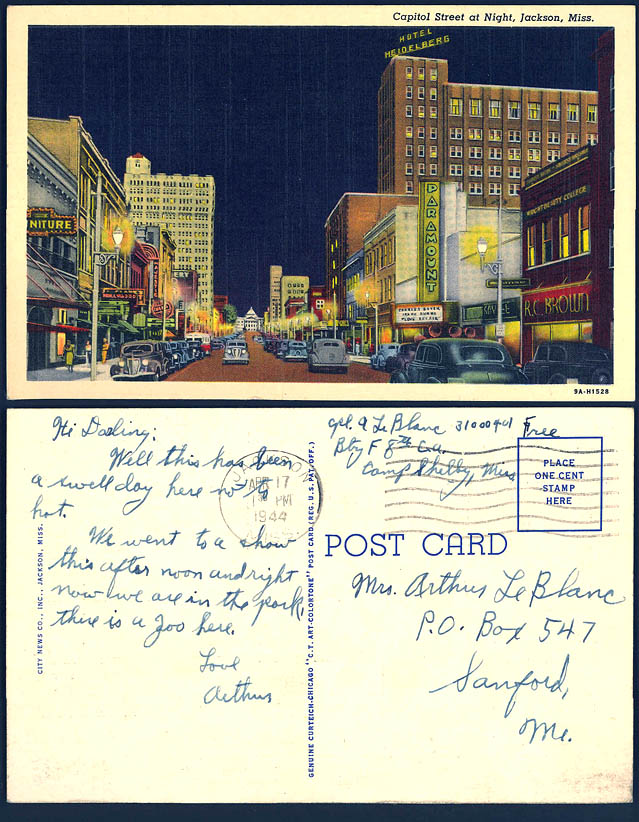 Capitol Street at Night, Jackson, Miss.
HOTEL
HEIDELBERG
NITURE
HOLLYWOOD
ERY
PARAMOUNT
CHARLES BOYER
WRIGHT BEAUTY COLLEGE
R.C. BROWN
9A-H1528
Hi Darling:
Well this has been
a swell day here
hot.
We went to a show
this after noon and right
now we are in the park,
there is a Zoo here.
Love
Arthur
CITY NEWS CO., INC. JACKSON, MISS.
GENUINE CURTEICH-CHICAGO "C.T. ART-COLORTONE" POST CARD (REG. U.S. PAT. OFF.)
JACKSON
APR 17
PM
1944
Cpl. A LeBlanc 31000401 Free
Bty F 8th C.A.
Camp Shelby, Miss
PLACE
ONE CENT
STAMP
HERE
POST CARD
Mrs. Arthur LeBlanc
P.O. Box 547
Sanford,
Me.